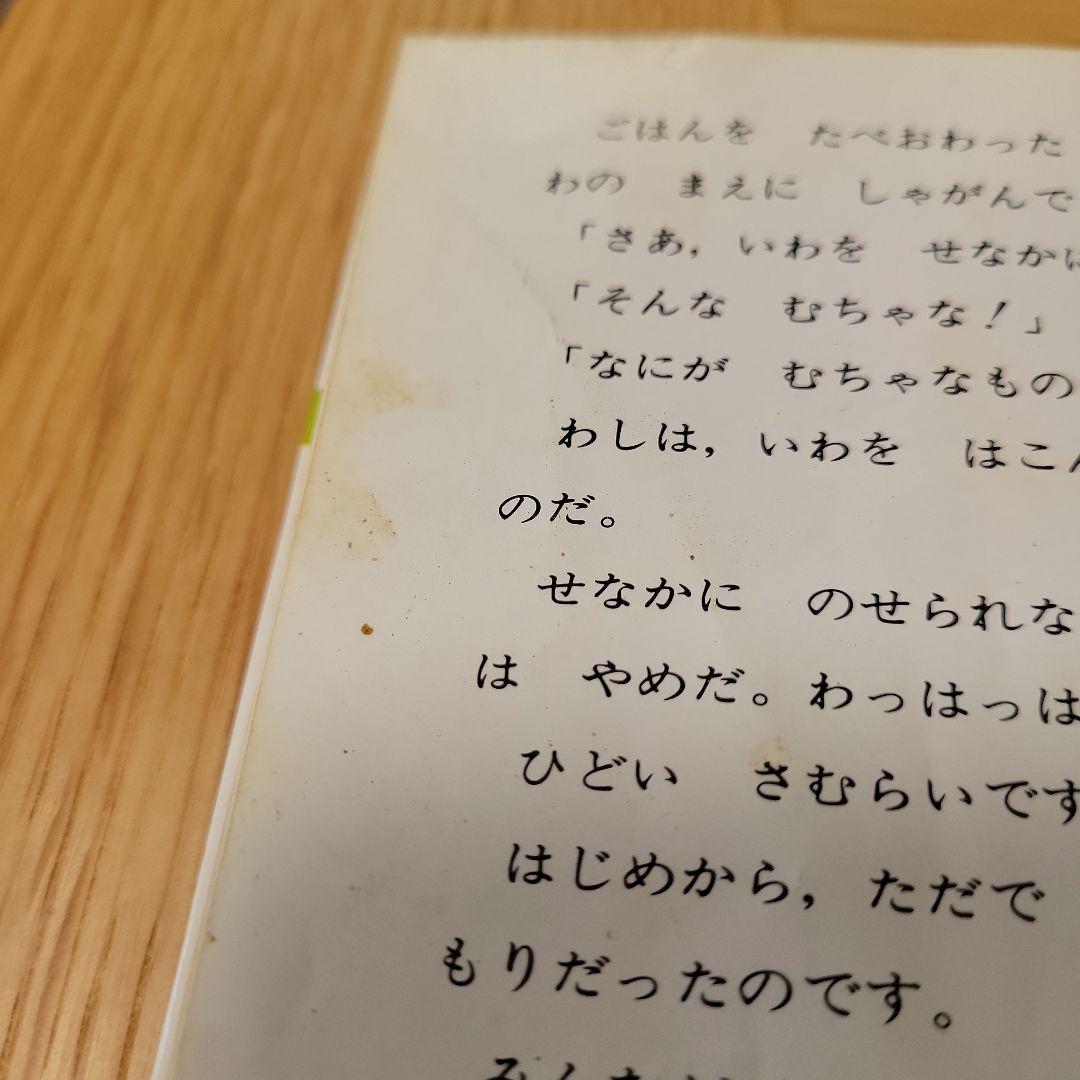 ごはんを　たべおわった
わの　まえに　しゃがんで
「さあ，いわを　せなかに
「そんな　むちゃな！」
「なにが　むちゃなもの
わしは，いわを　はこん
のだ。
せなかに　のせられな
は　やめだ。わっはっは
ひどい　さむらいです
はじめから，ただで
もりだったのです。